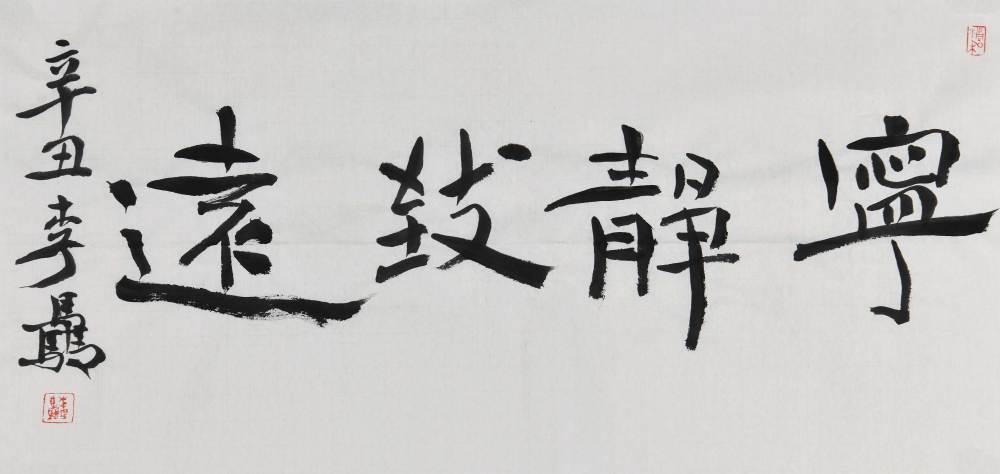 寧靜致遠
辛丑李驫